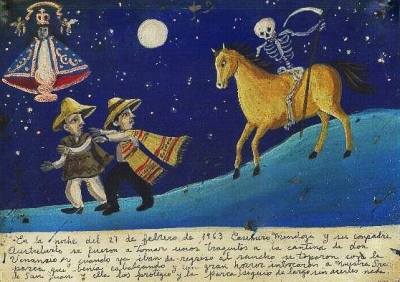 En la noche del 27 de febrero de 1963 Casiburo Mendoza y su compadre
Austreberto se fueron a tomar unos traguitos a la cantina de don
Venansio y cuando ya iban de regreso al rancho se toparon con la
parca que benia cabalgando y con gran horror invocaron a Nuestra Sra.
de San Juan y ella los protegio y la parca siguio de largo sin aserles nada